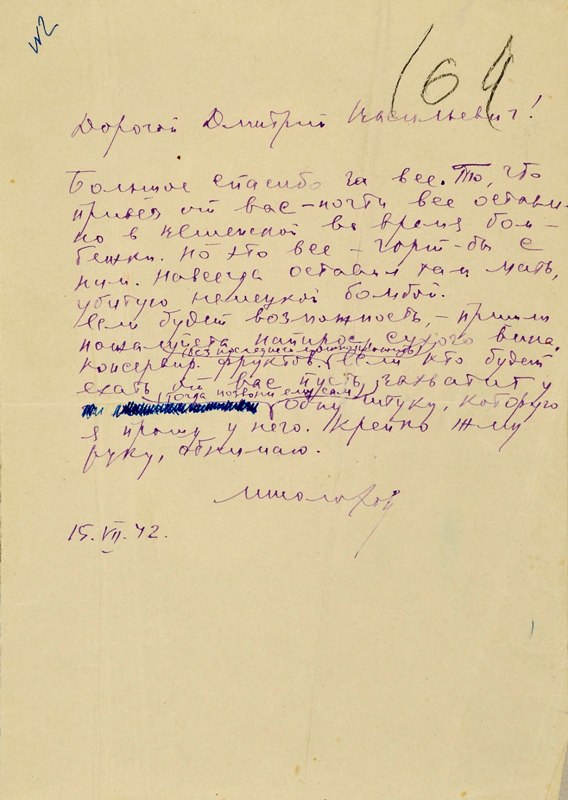 №2
164
Дорогой Дмитрий Васильевич!
Большое спасибо за все. То, что
привез от вас – почти все оставле-
но в Вешенской во время бом-
бежки. Но это все – горя-бы с
ним. Навсегда оставил там мать,
убитую немецкой бомбой.
Если будет возможность, – пришли
пожалуйста папирос, сухого вина,
(без последнего можно обойтись)
консервир. фруктов. Если кто будет
ехать от вас пусть захватит у
(тогда позвони ему сам)
одну штуку, которую
я прошу у него. Крепко жму
руку, обнимаю.
МШолохов
15.VII.42.